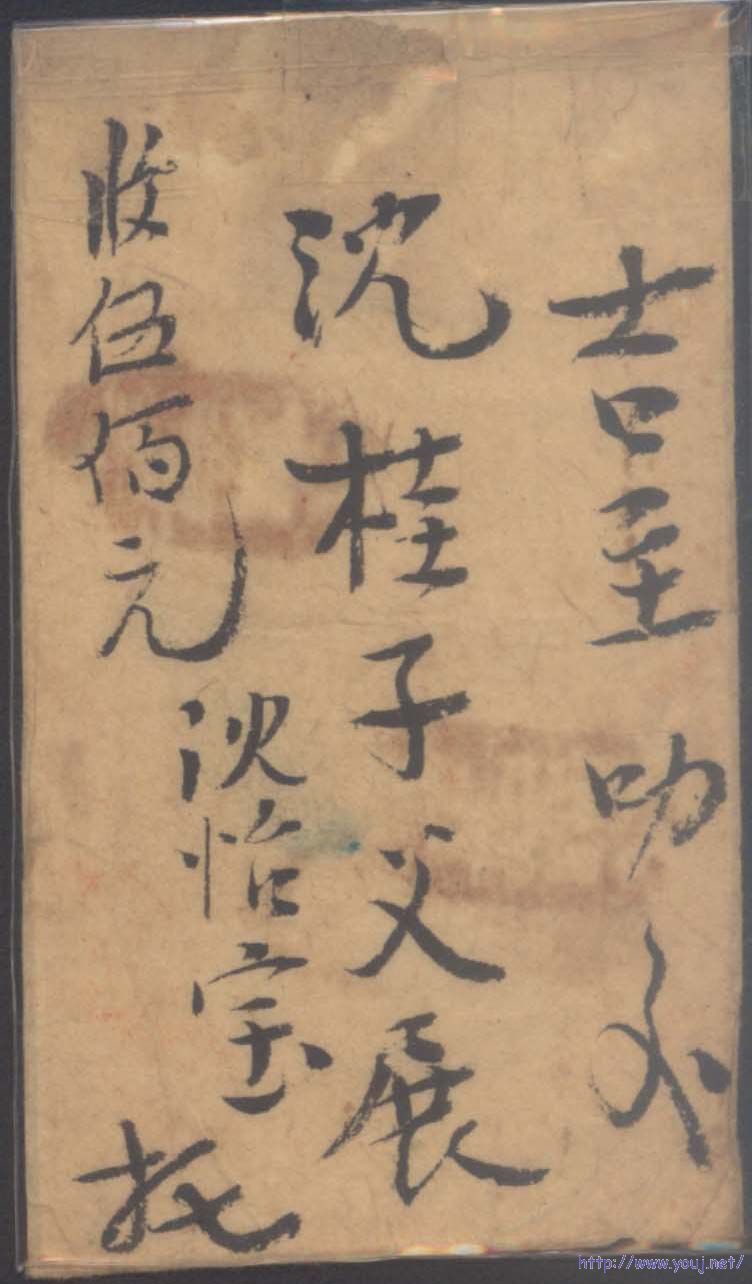 吉至叻交
沈桂子父展
收伍佰元
沈怡宝托
http://www.youj.net/